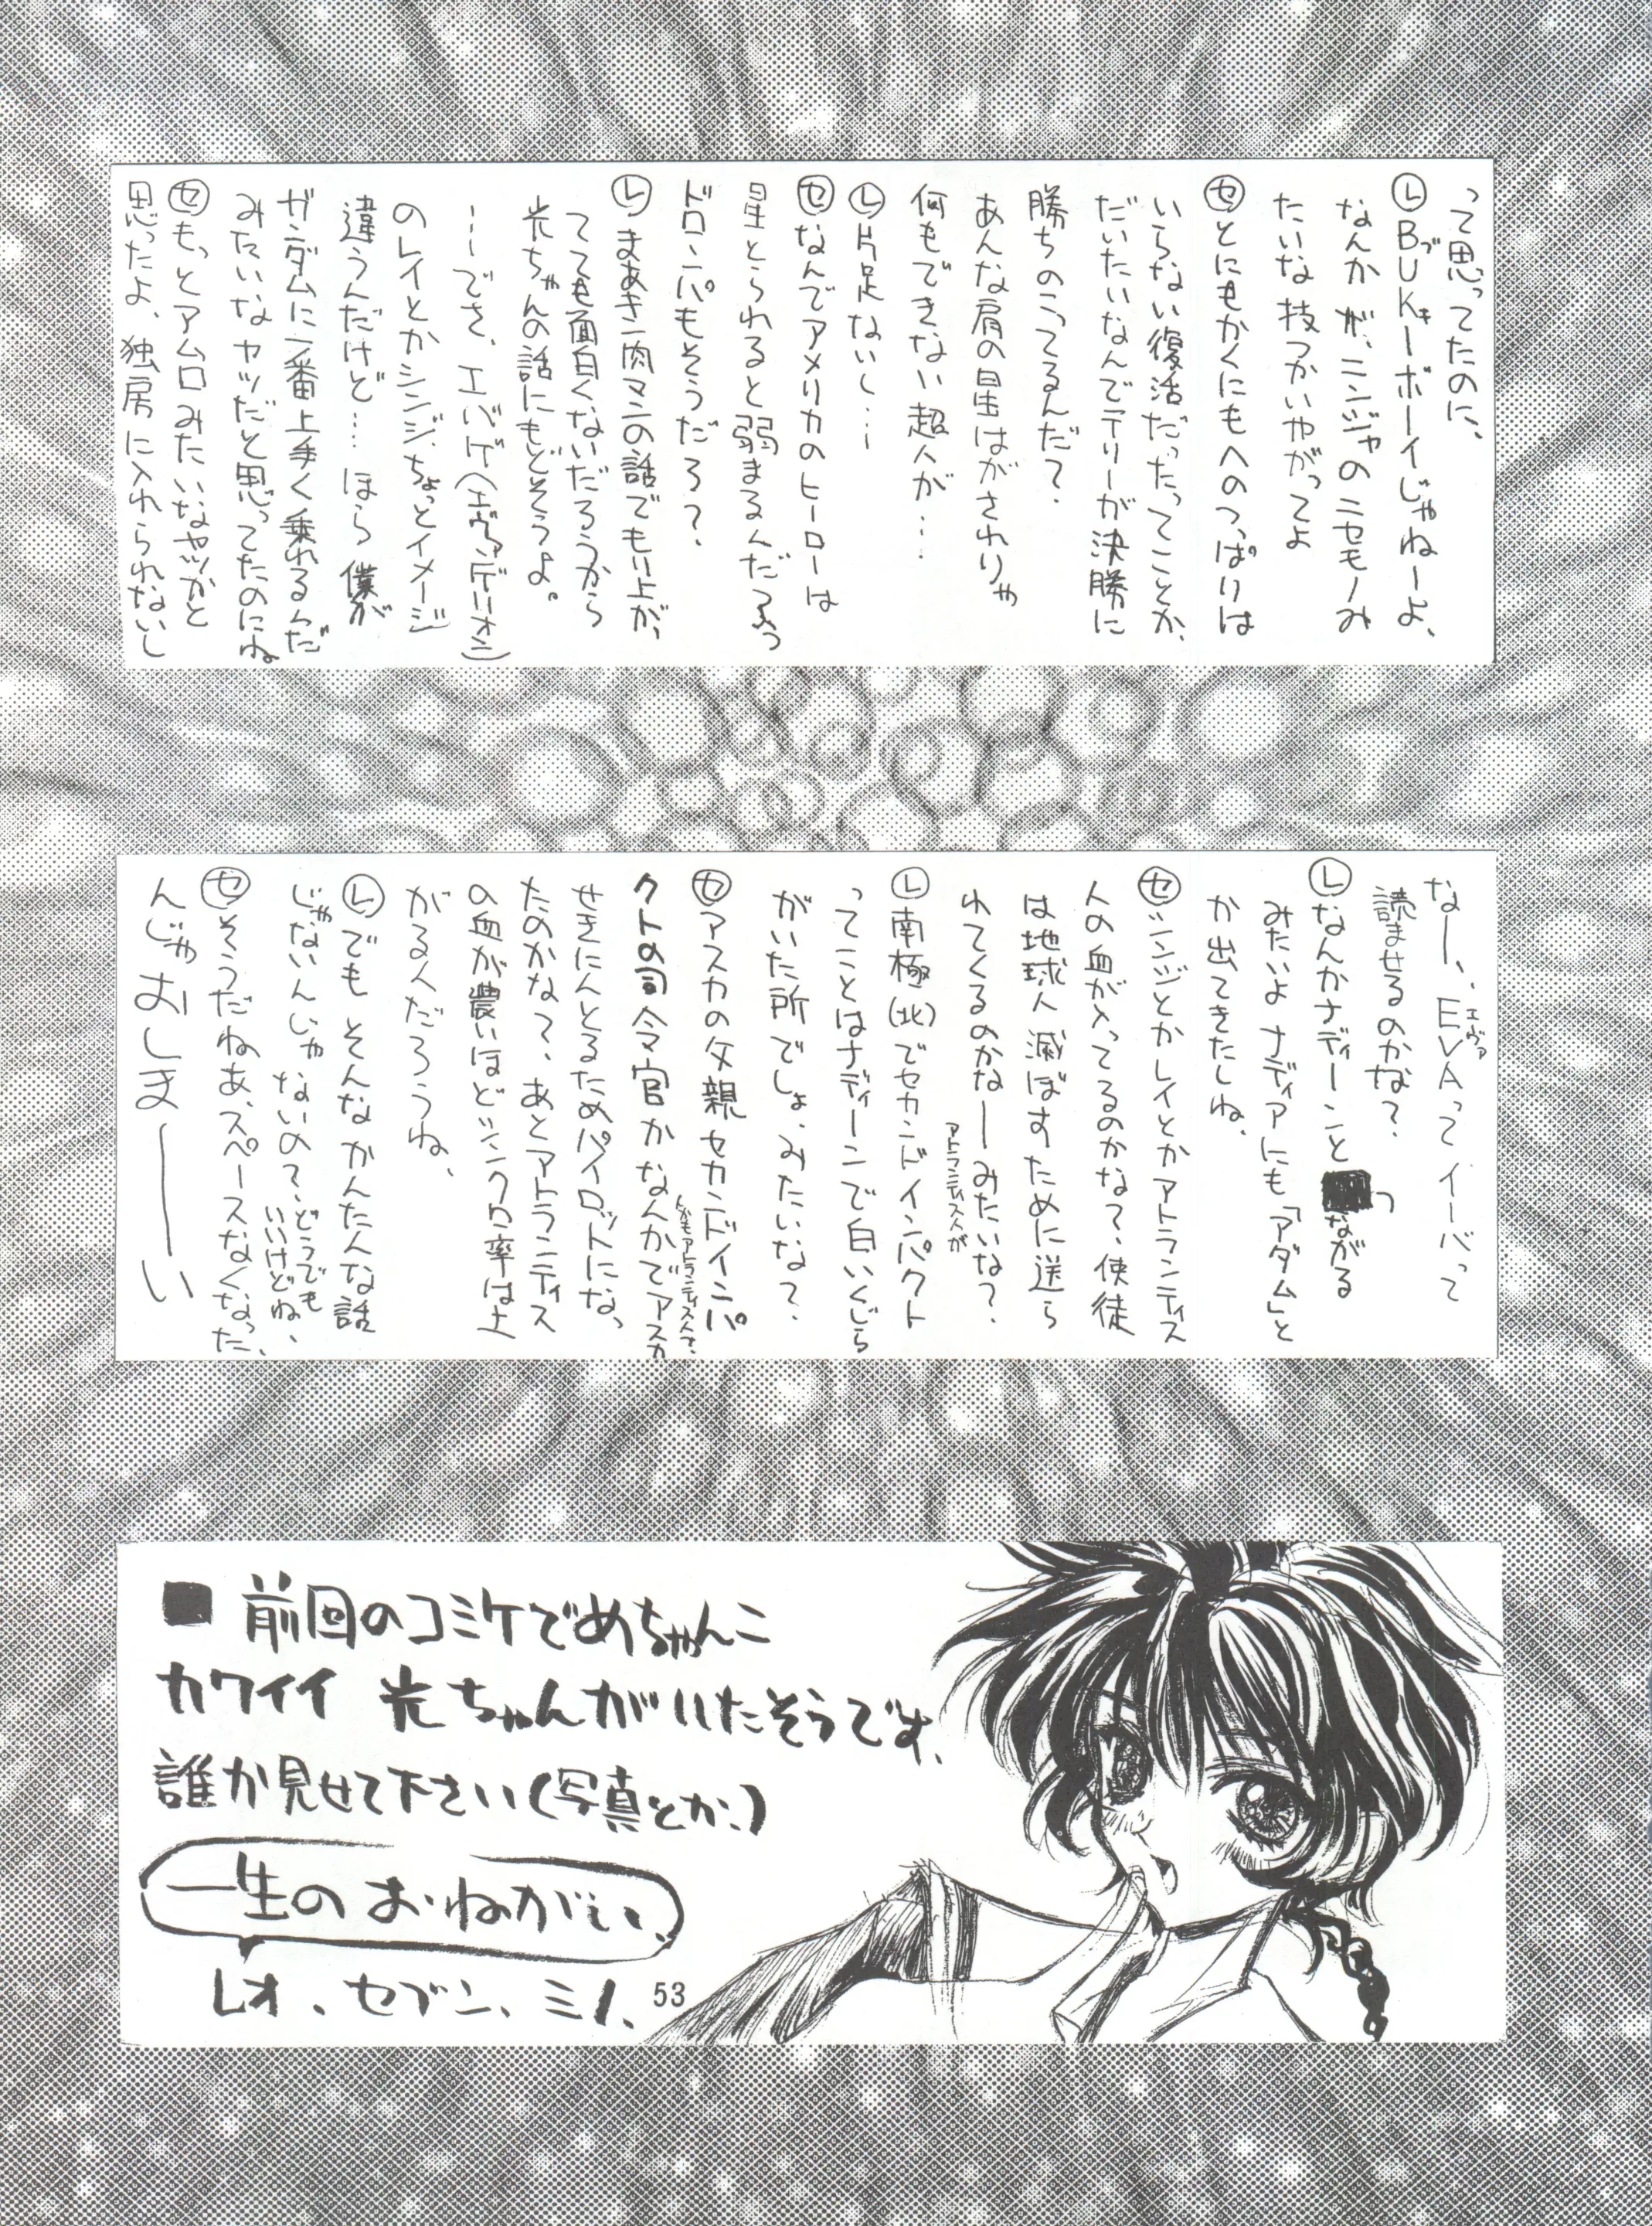 って思ってたのに、
㋹BUKキーボーイじゃねーよ、
なんかが、ニンジャのニセモノみ
たいな技つかいやがってよ
㋝とにもかくにもへのつっぱりは
いらない復活だったってことか、
だいたいなんでテリーが決勝に
勝ちのこってるんだ？
あんな肩の星はがされりゃ
何もできない超人が…
㋹片足ないし…
㋝なんでアメリカのヒーローは
星とられると弱まるんだろう
ドロンパもそうだろ？
㋹まあキン肉マンの話でもり上がっ
てても面白くないだろうから
光ちゃんの話にもどそうよ。
…でさ、エバゲ(エヴァンゲリオン)
のレイとかシンジ、ちょっとイメージ
違うんだけど… ほら 僕が
ガンダムに一番上手く乗れるんだ
みたいなヤツだと思ってたのにね
㋝もっとアムロみたいなヤツかと
思ったよ、独房に入れられないし
なー、EVAエヴァってイーバって
読ませるのかな？
㋹なんかナディーンとつ
ながる
みたいよ ナディアにも「アダム」と
か出てきたしね、
㋝シンジとかレイとかアトランティス
人の血が入ってるのかな？、使徒
は地球人滅ぼすために送ら
れてくるのかなーみたいな？
アトランティス人が
㋹南極(北)でセカンドインパクト
ってことはナディーンで白いくじら
がいた所でしょ、みたいな？
㋝アスカの父親セカンドインパ
クトの司令官かなんかでアスカ
しかもアトランティス人で、
せきにんとるためパイロットになっ
たのかな？、あとアトランティス
の血が濃いほどシンクロ率は上
がる人だろうね、
㋹でも そんな かんたんな話
じゃないんじゃないの？、どうでも
いいけどね、
㋝そうだねあ、スペースなくなった、
んじゃおしまーーい
■ 前回のコミケでめちゃんこ
カワイイ 光ちゃんがいたそうです、
誰か見せて下さい(写真とか、)
一生のおねがい、
レオ、セブン、ミノ、
53